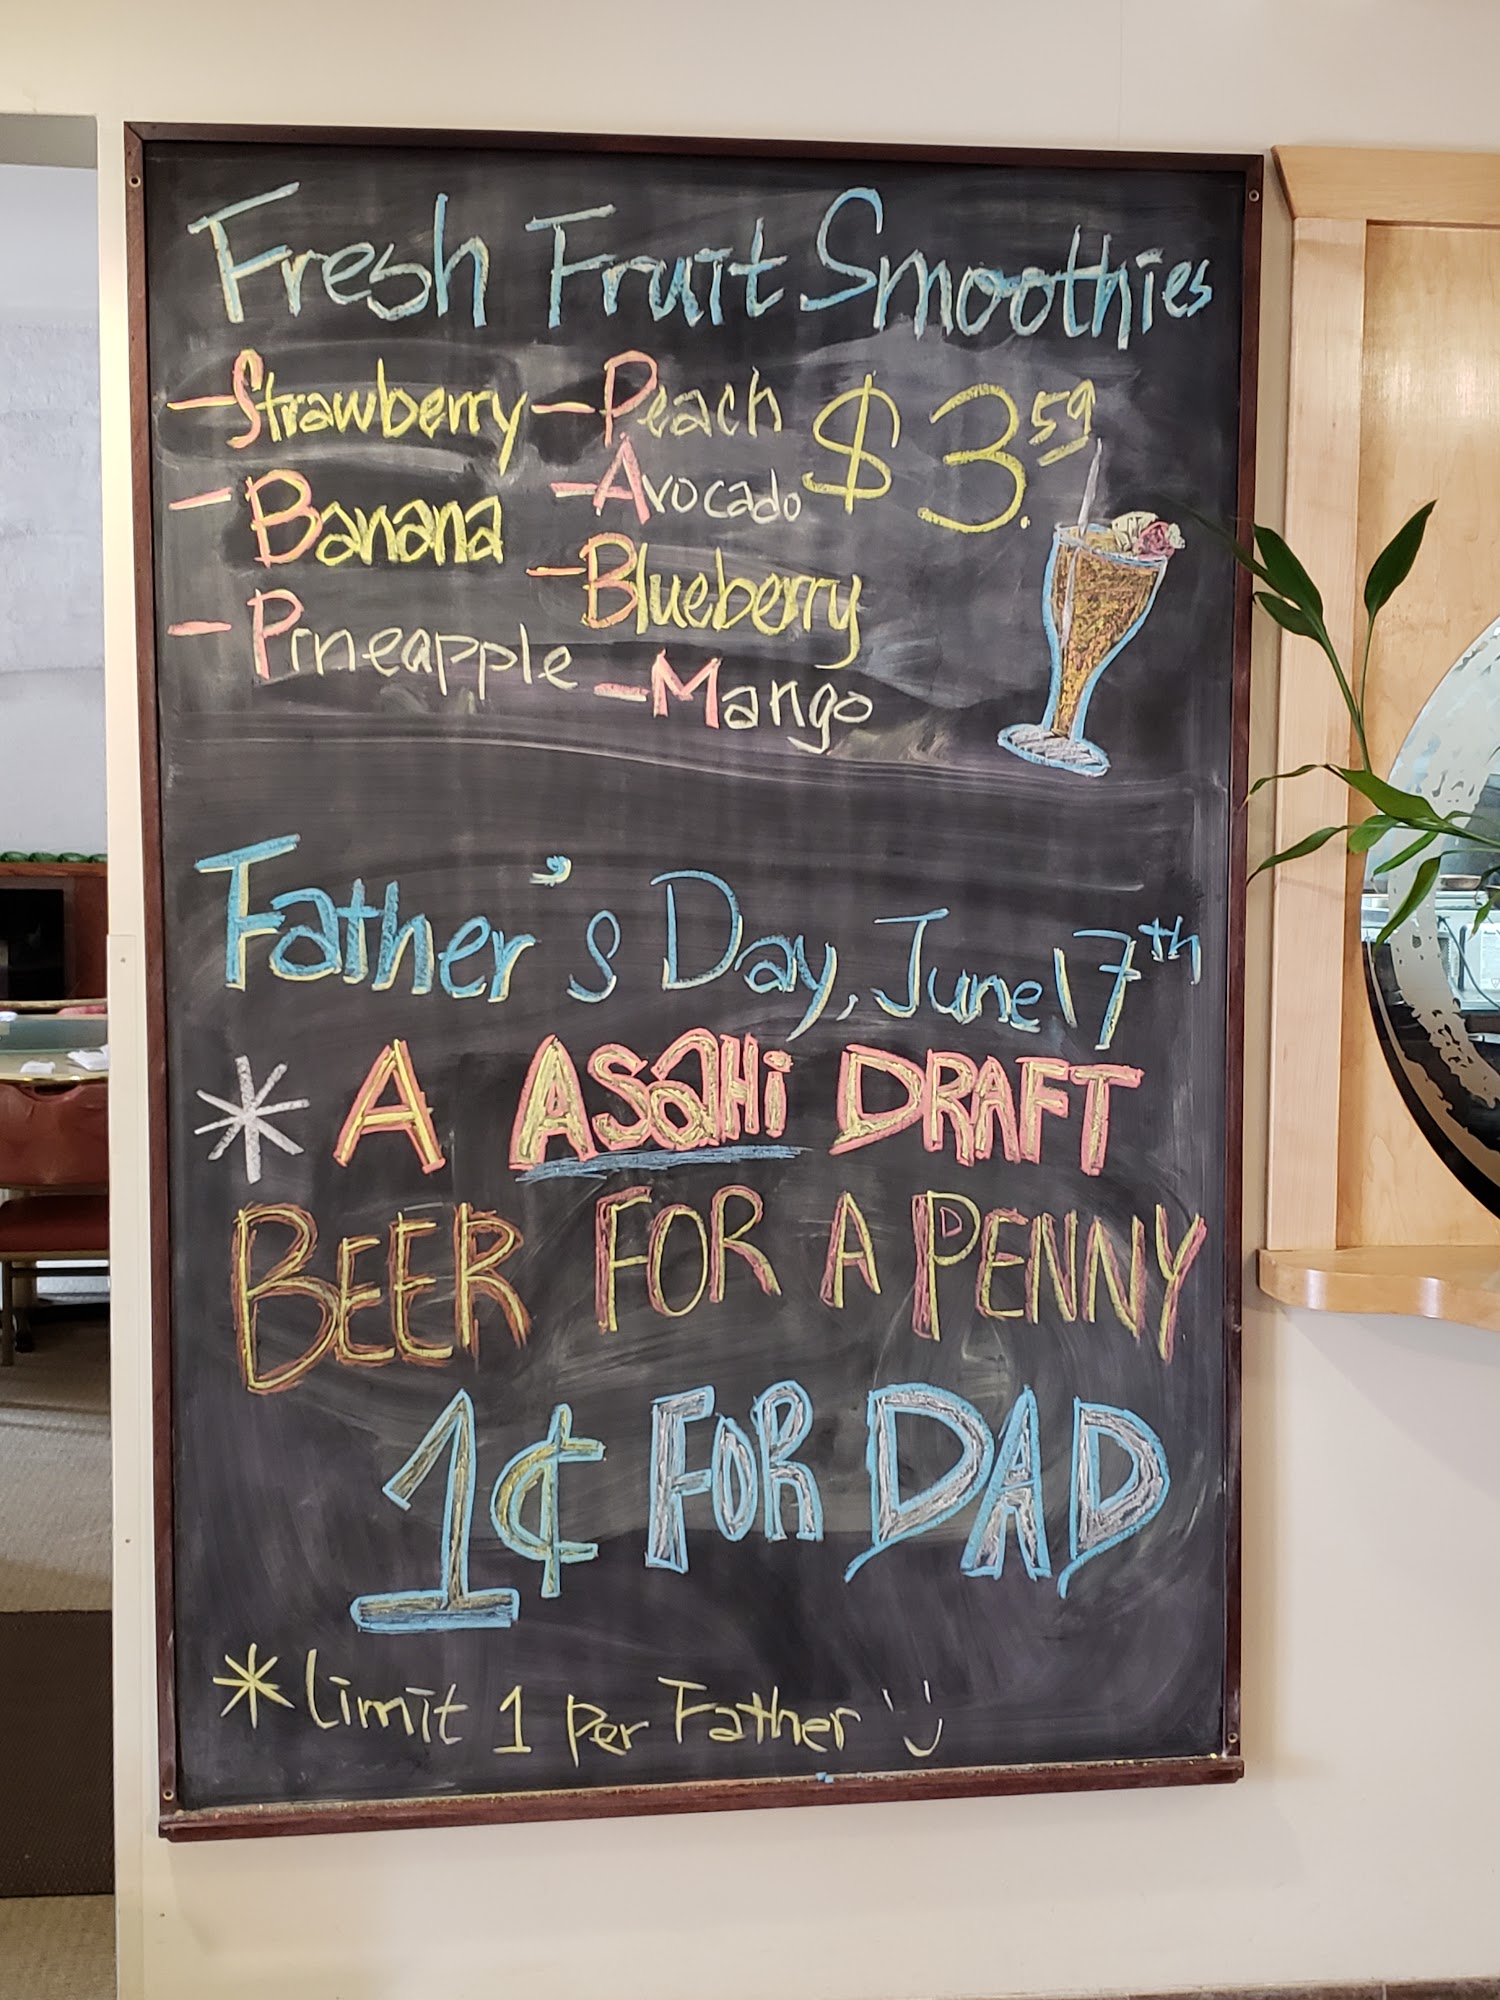 Fresh Fruit Smoothies
- Strawberry - Peach $3.59
- Banana - Avocado
- Pineapple - Blueberry
- Mango
Father's Day, June 17th
* A ASAHi DRAFT
BEER FOR A PENNY
1¢ FOR DAD
* Limit 1 per Father :)